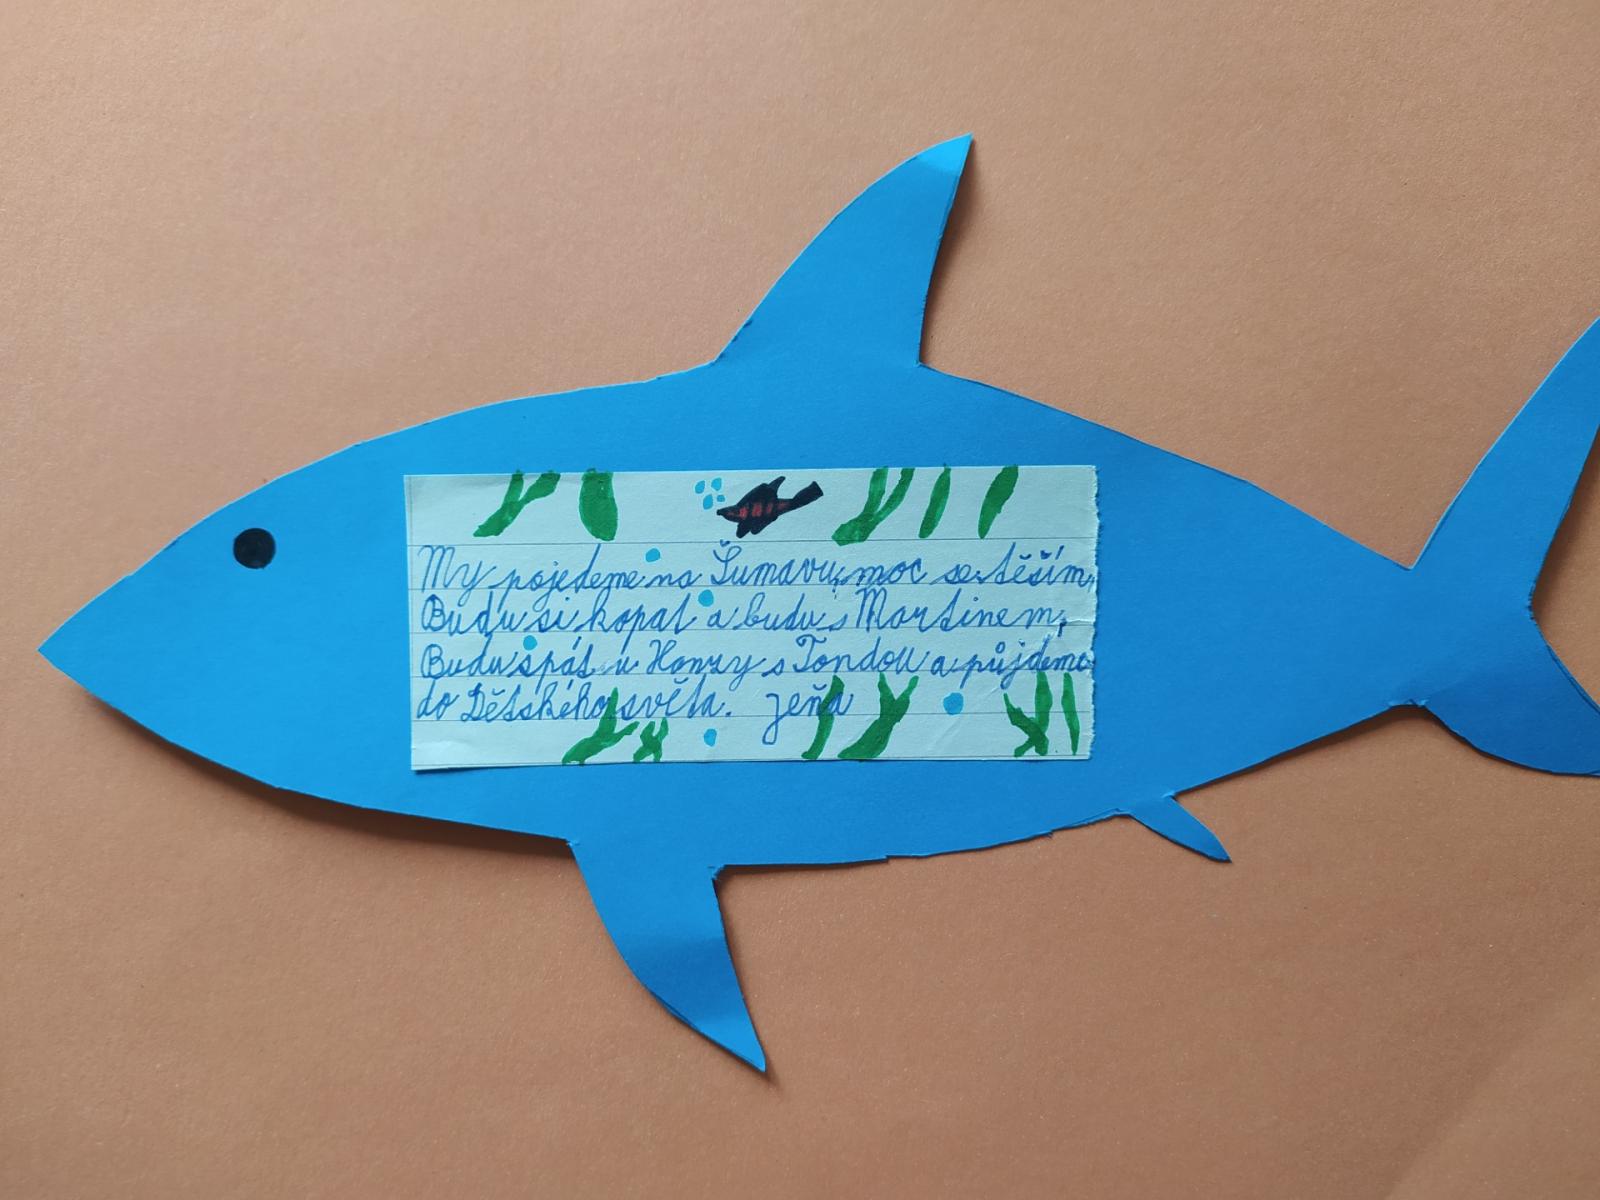 My pojedeme na Šumavu, moc se těším,
Budu si kopat a budu s Martinem,
Budu spát u Honzy s Tondou a půjdeme
do Dětského světa. Jeňa